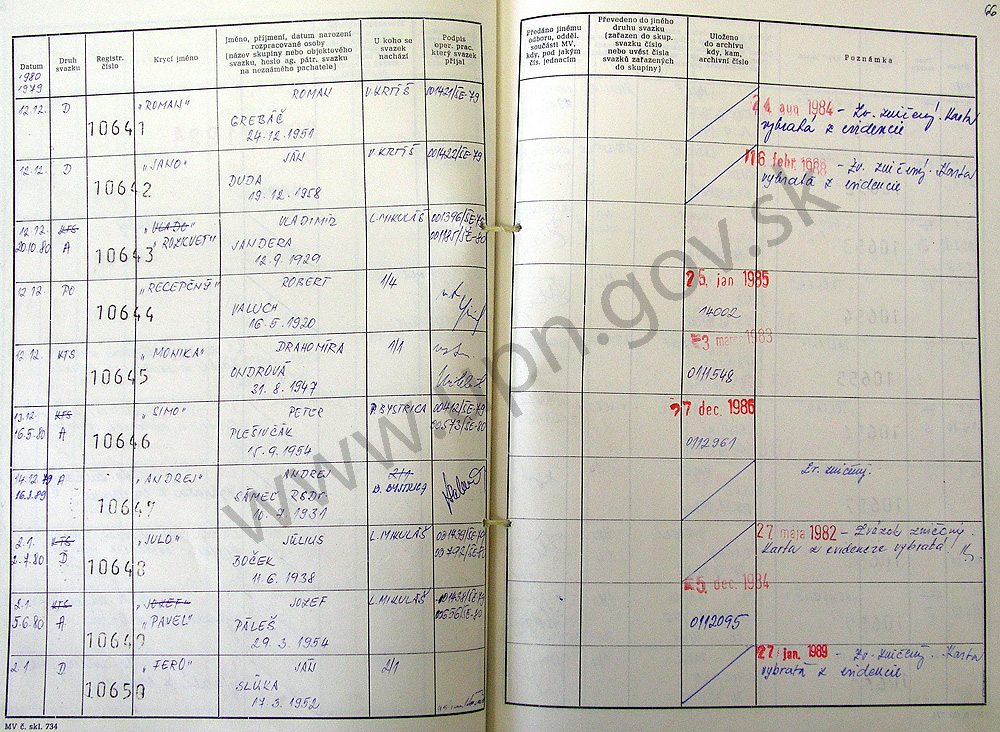 66
Datum
1980
1979
Druh
svazku
Registr.
číslo
Krycí jméno
Jméno, příjmení, datum narození
rozpracované osoby
(název skupiny nebo objektového
svazku, heslo ag. pátr. svazku
na neznámého pachatele)
U koho se
svazek
nachází
Podpis
oper. prac.
který svazek
přijal
Předáno jinému
odboru, odděl.
součásti MV,
kdy, pod jakým
čís. jednacím
Převedeno do jiného
druhu svazku
(zařazen do skup.
svazku číslo
nebo uvést čísla
svazků zařazených
do skupiny)
Uloženo
do archivu
kdy, kam,
archivní číslo
Poznámka
12.12. D 10641 "ROMAN" ROMAN V. KRTÍŠ 001421/ŠE-79
GREBÁČ
24.12.1951
24. aug 1984 - Zv. zničený. Karta
vybratá z evidencie
12.12. D 10642 "JANO" JÁN V. KRTÍŠ 001422/ŠE-79
DUDA
19.12.1958
16. febr. 1988 - Zv. zničený. Karta
vybratá z evidencie
12.12. KTS 10643 "VLADO" VLADIMÍR L. MIKULÁŠ
20.10.80 A "ROZKVET" JANDERA
12.9.1929
12.12 PO 10644 "RECEPČNÝ" ROBERT 1/4
VALUCH
16.5.1920
25. jan 1985
14002
12.12. KTS 10645 "MONIKA" DRAHOMÍRA 1/1
ONDROVA
31.8.1947
3 marec 1983
0111548
13.12. KTS 10646 "SIMO" PETER B. BYSTRICA 00412/ŠE-79
16.5.80 A PLEŠIVČÁK 00573/ŠE-80
15.9.1954
27 dec. 1986
0112961
14.12.79 A 10647 "ANDREJ" ANDREJ 2/1
16.3.89 SÁMEL RSDr. B. BYSTRICA
10.7.1931
Zv. zničený.
2.1. KTS 10648 "JULO" JÚLIUS L. MIKULÁŠ 001439/ŠE-79
2.7.80 D BOČEK 00772/ŠE-80
11.6.1938
27 mája 1982 - Zväzok zničený.
Karta z evidencie vybratá!
2.1. KTS 10649 "JOZEF" JOZEF L. MIKULÁŠ 001438/ŠE-79
5.6.80 A "PAVEL" PÁLEŠ 00656/ŠE-80
29.3.1954
5. dec. 1984
0112095
2.1. D 10650 "FERO" JÁN 2/1
SLÚKA
17.3.1952
27 jan. 1989 - Zv. zničený. Karta
vybratá z evidencie
MV č. skl. 734
www.upn.gov.sk